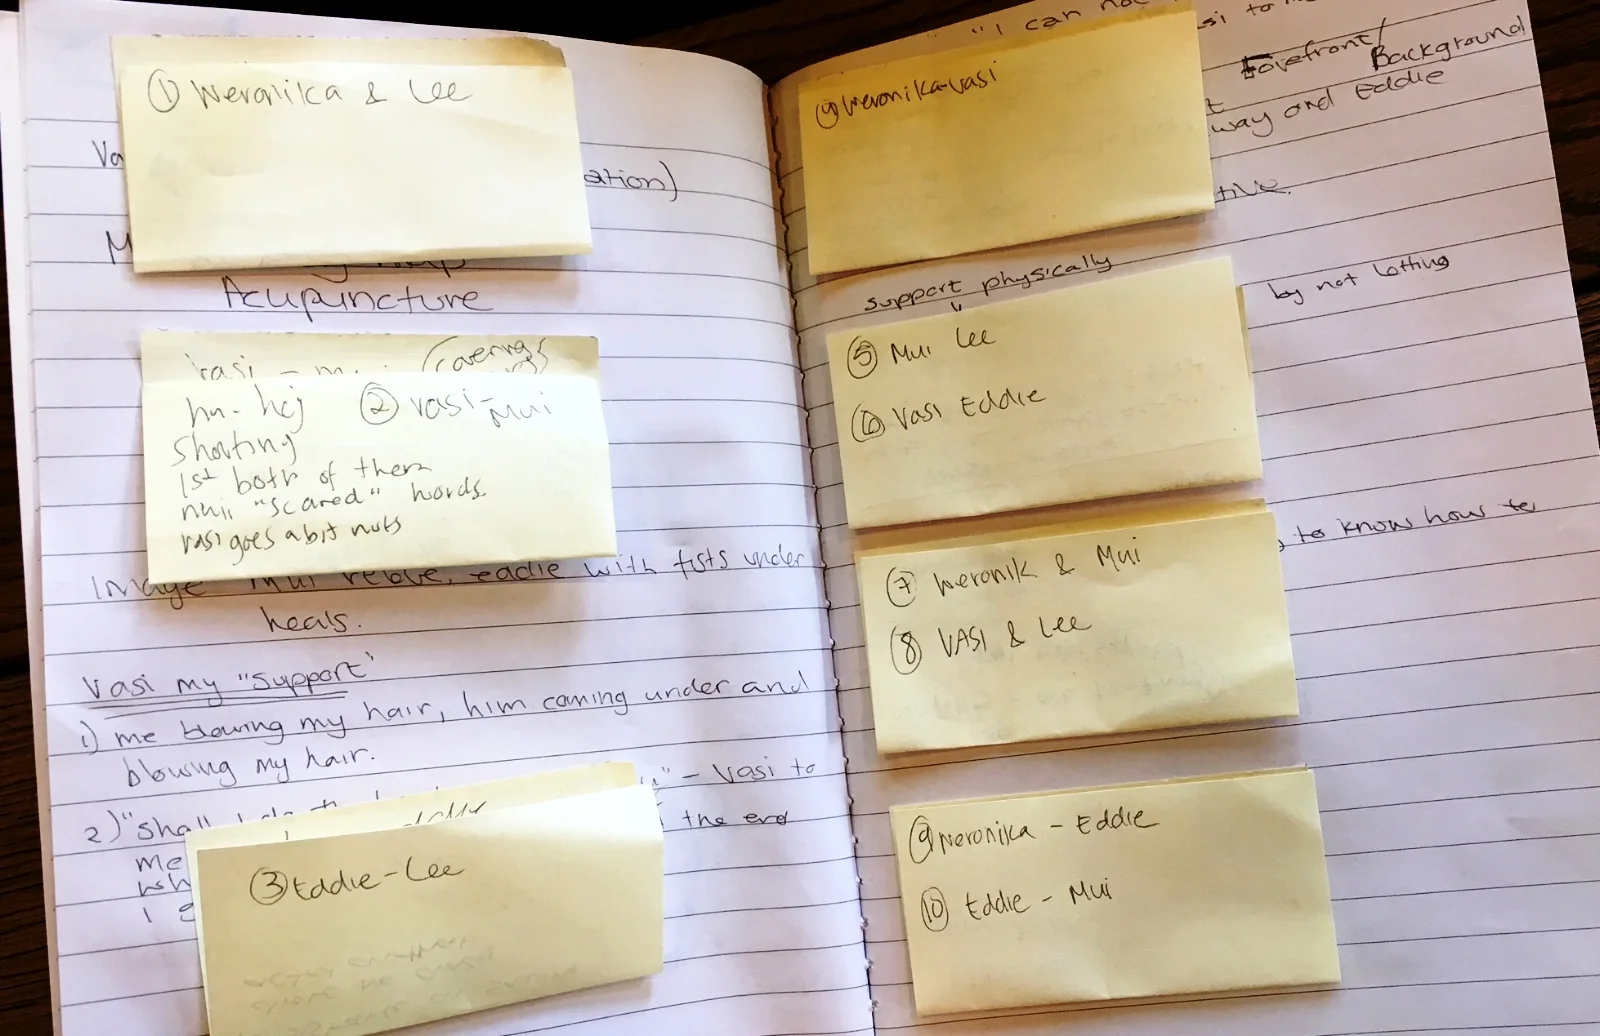 ① Weronika & Lee
Va
ation)
M
Acupuncture
vasi - m
② Vasi-Mui
Shouting
1st both of them
"scared" words.
vasi goes a bit nuts
Image Mui eddie with fists under
heals.
Vasi my "Support"
1) me blowing my hair, him coming under and
blowing my hair.
2) "shall - Vasi to
me the end
wh
③ Eddie-Lee
"I can not
si to
Forefront/
Background
way and Eddie
④ Weronika-Vasi
tive.
support physically
by not letting
⑤ Mui Lee
⑥ Vasi Eddie
to know how to
⑦ Weronik & Mui
⑧ VASI & Lee
⑨ Weronika - Eddie
⑩ Eddie - Mui